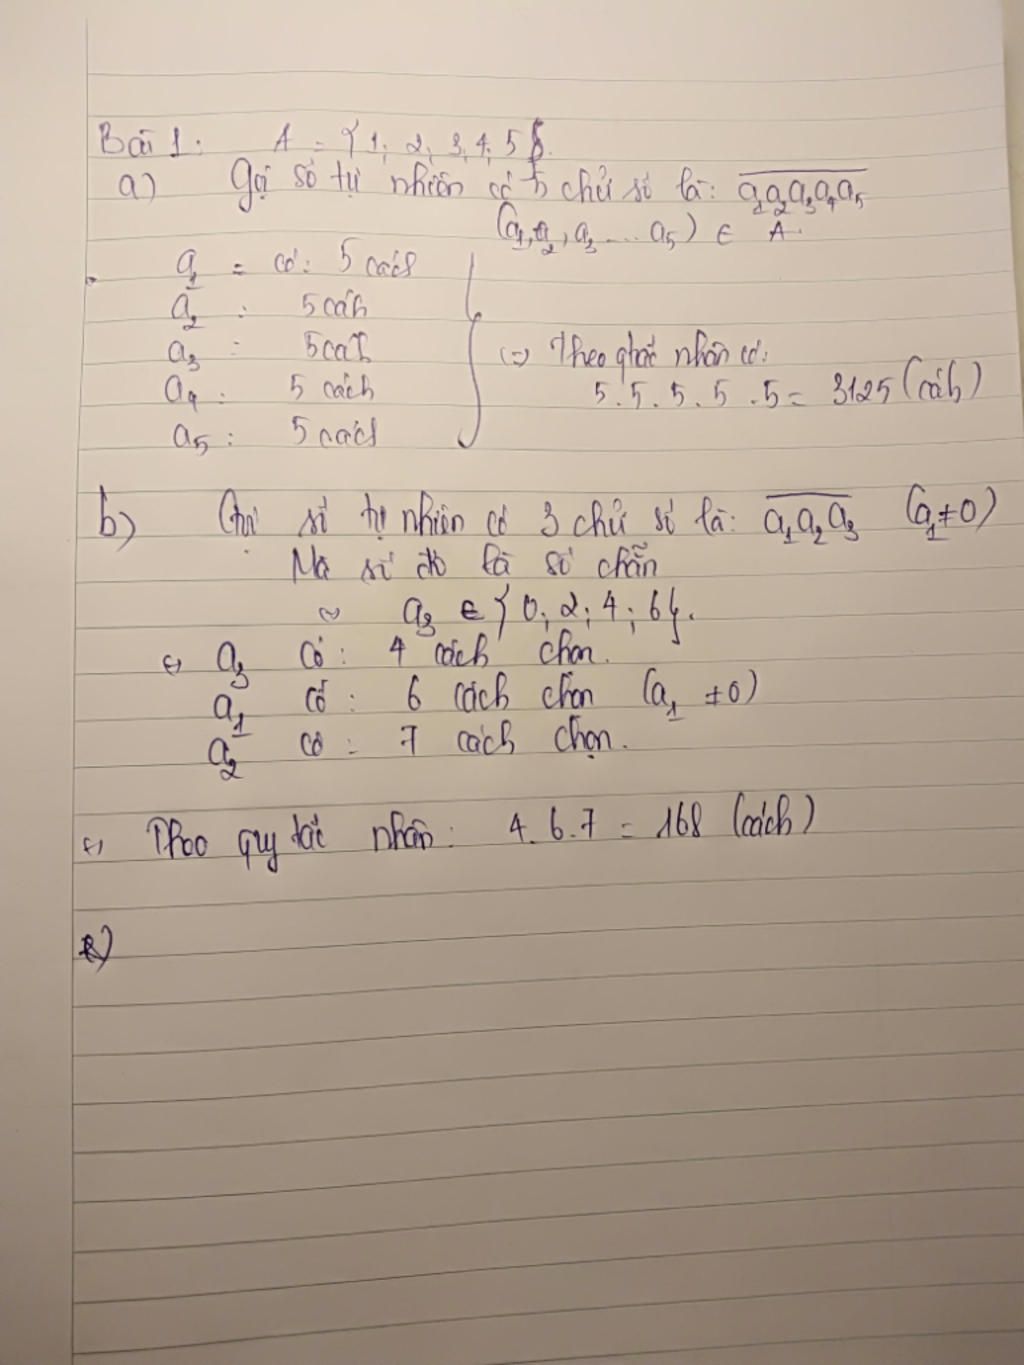 Bài 1: A = {1; 2; 3; 4; 5}.
a) Gọi số tự nhiên có 5 chữ số là: a₁a₂a₃a₄a₅
(a₁, a₂, a₃ ... a₅) ∈ A.
a₁ = có: 5 cách
a₂ : 5 cách
a₃ : 5 cách
a₄ : 5 cách
a₅ : 5 cách
=> Theo nhân có:
5.5.5.5.5 = 3125 (cách)
b) Gọi số tự nhiên có 3 chữ số là: a₁a₂a₃ (a₁≠0)
Mà số đó là số chẵn
a₃ ∈ {0; 2; 4; 6}.
=> a₃ có: 4 cách chọn.
a₁ có: 6 cách chọn (a₁ ≠0)
a₂ có: 7 cách chọn.
=> Theo quy tắc nhân: 4.6.7 = 168 (cách)